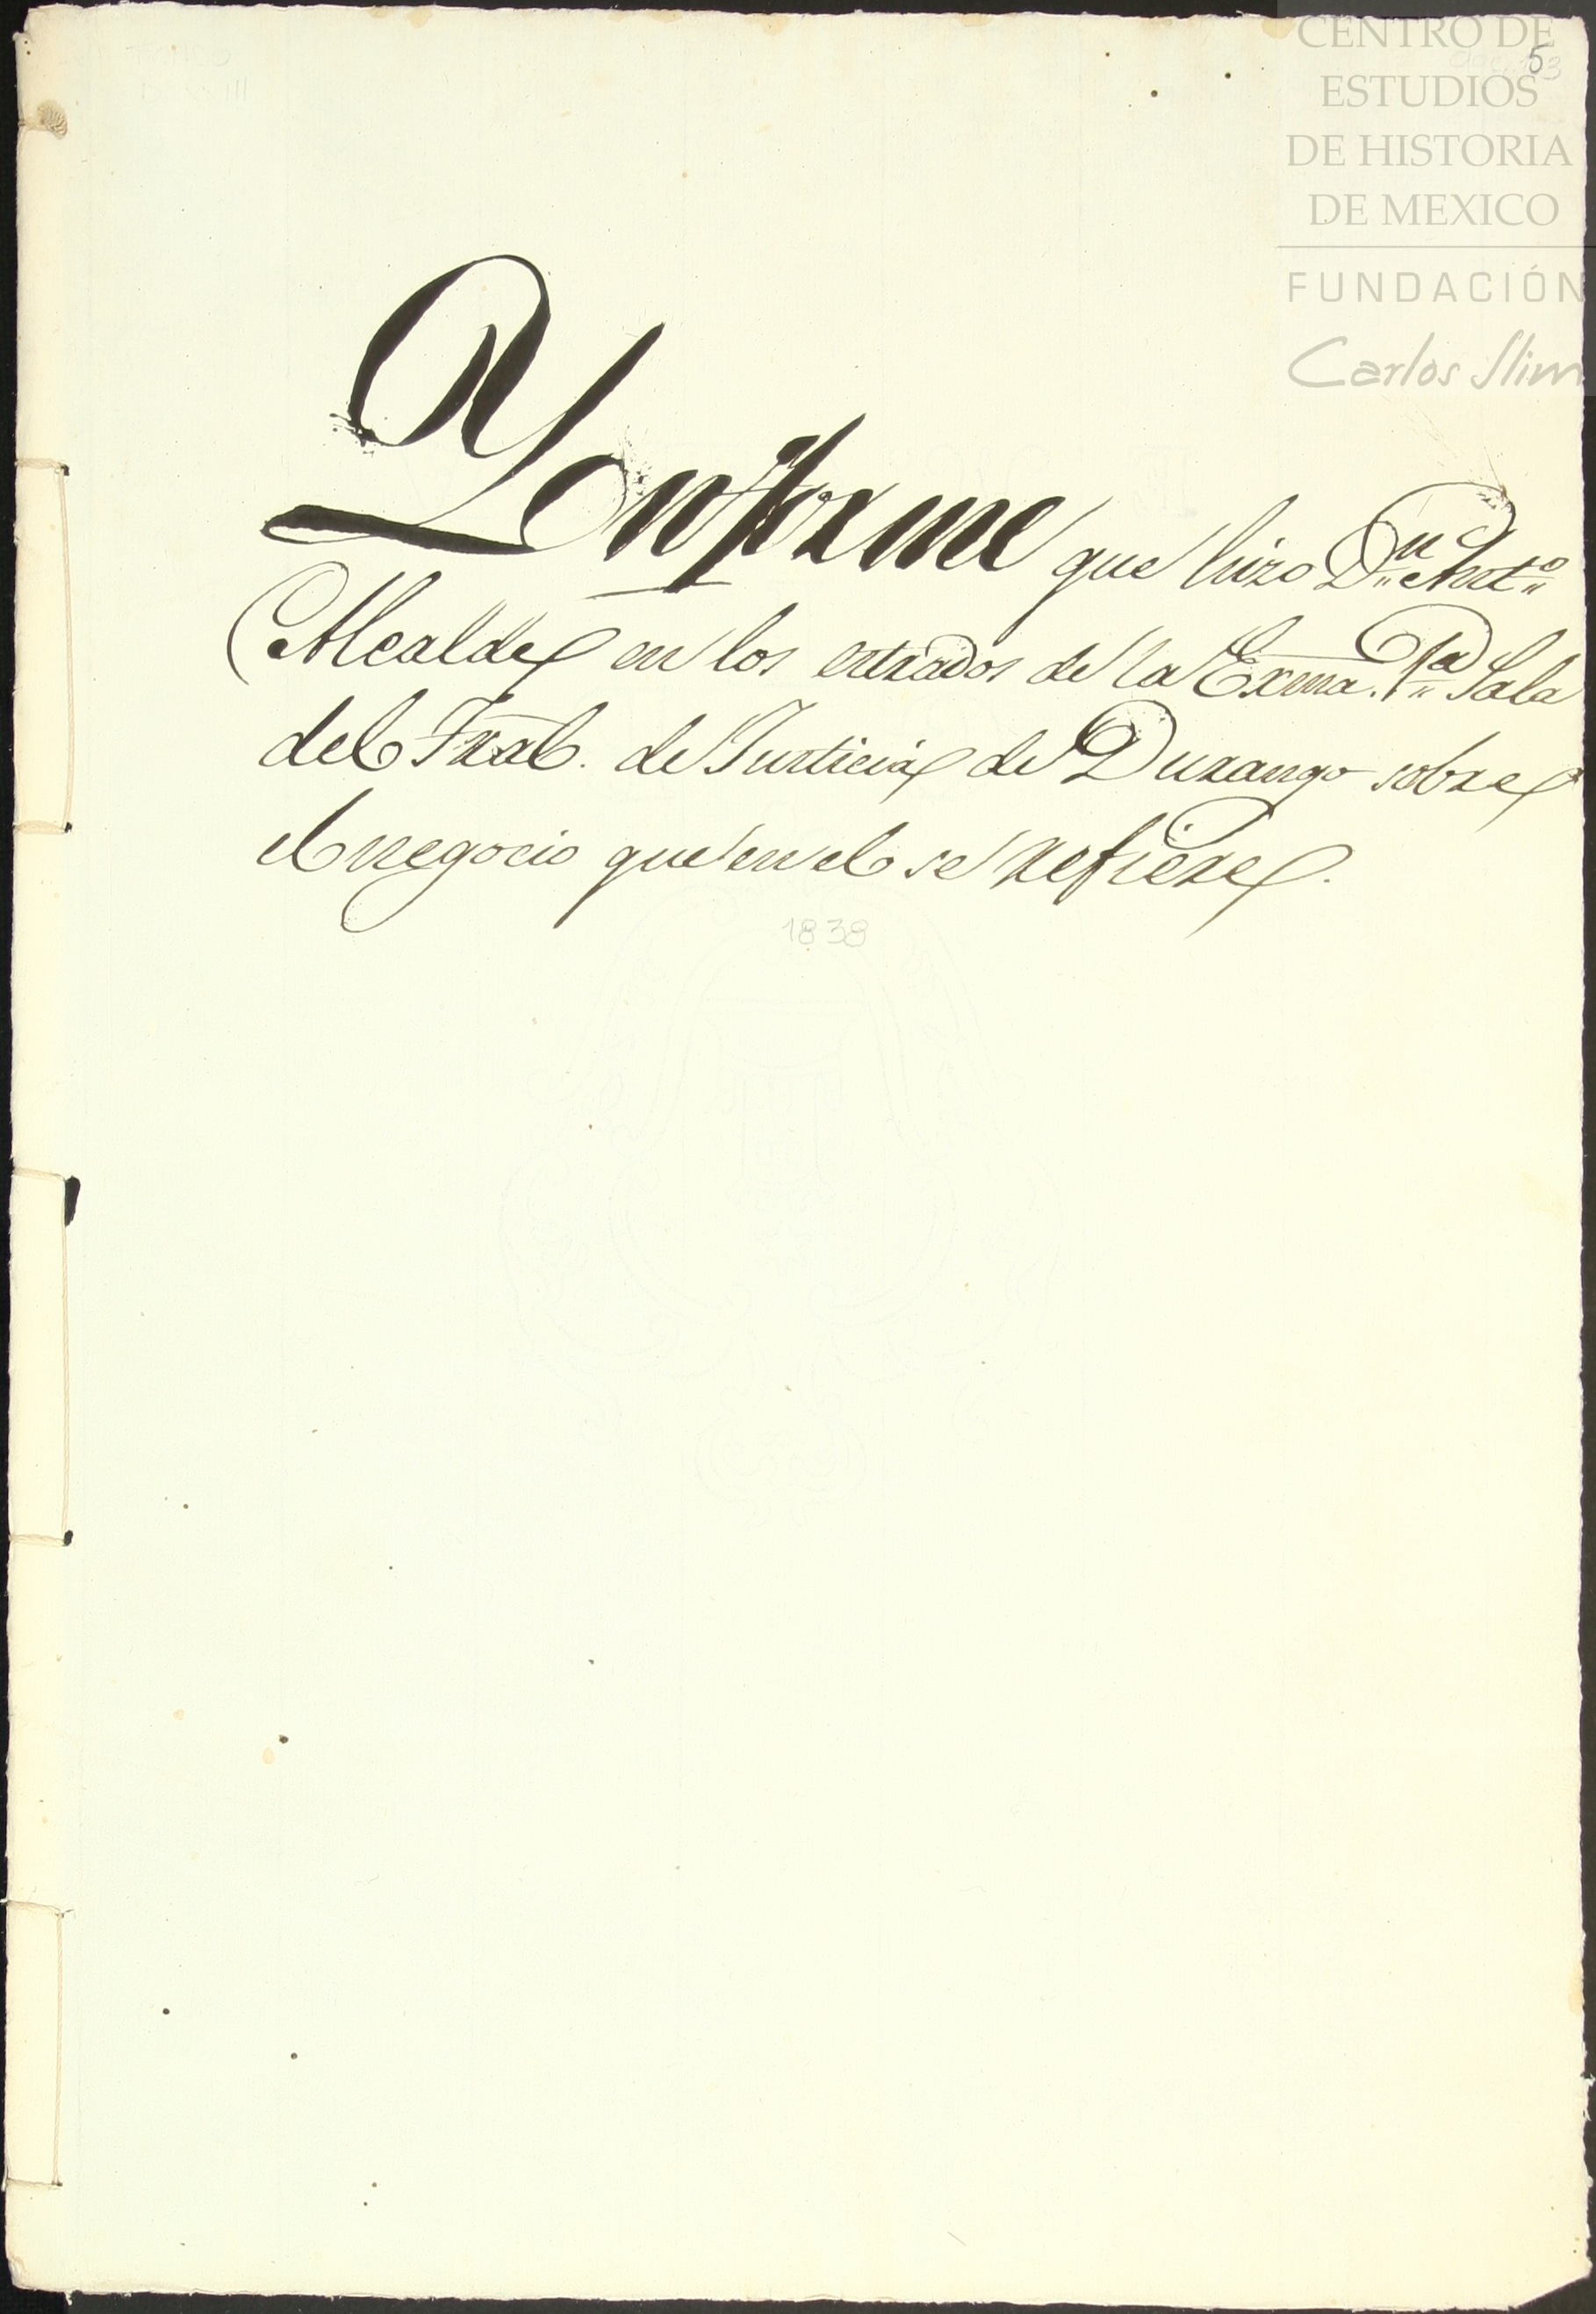 CENTRO DE
ESTUDIOS
DE HISTORIA
DE MEXICO
FUNDACIÓN
Carlos Slim
5
Ynforme que hizo Dn Anto
Alcalde en los estrados de la Exma. 1a Sala
del Tral. de Justicia de Durango sobre
el negocio que en el se refiere.
1838